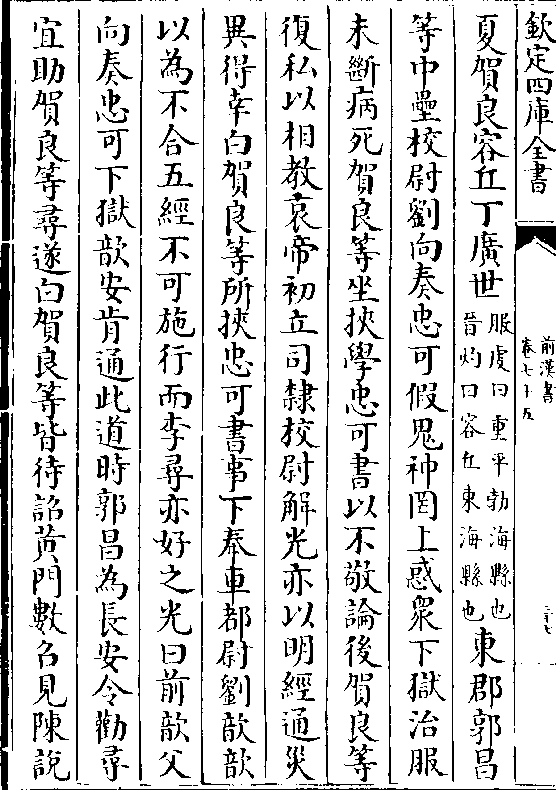 欽定四庫全書
前漢書
卷七十五
三七
夏賀良容丘丁廣世服虔曰重平勃海縣也晉灼曰容丘東海縣也東郡郭昌
等中壘校尉劉向奏忠可假鬼神罔上惑衆下獄治服
未斷病死賀良等坐挾學忠可書以不敬論後賀良等
復私以相教哀帝初立司隸校尉解光亦以明經通災
異得幸白賀良等所挾忠可書事下奉車都尉劉歆歆
以為不合五經不可施行而李尋亦好之光曰前歆父
向奏忠可下獄歆安肯通此道時郭昌為長安令勸尋
宜助賀良等尋遂白賀良等皆待詔黃門數召見陳說